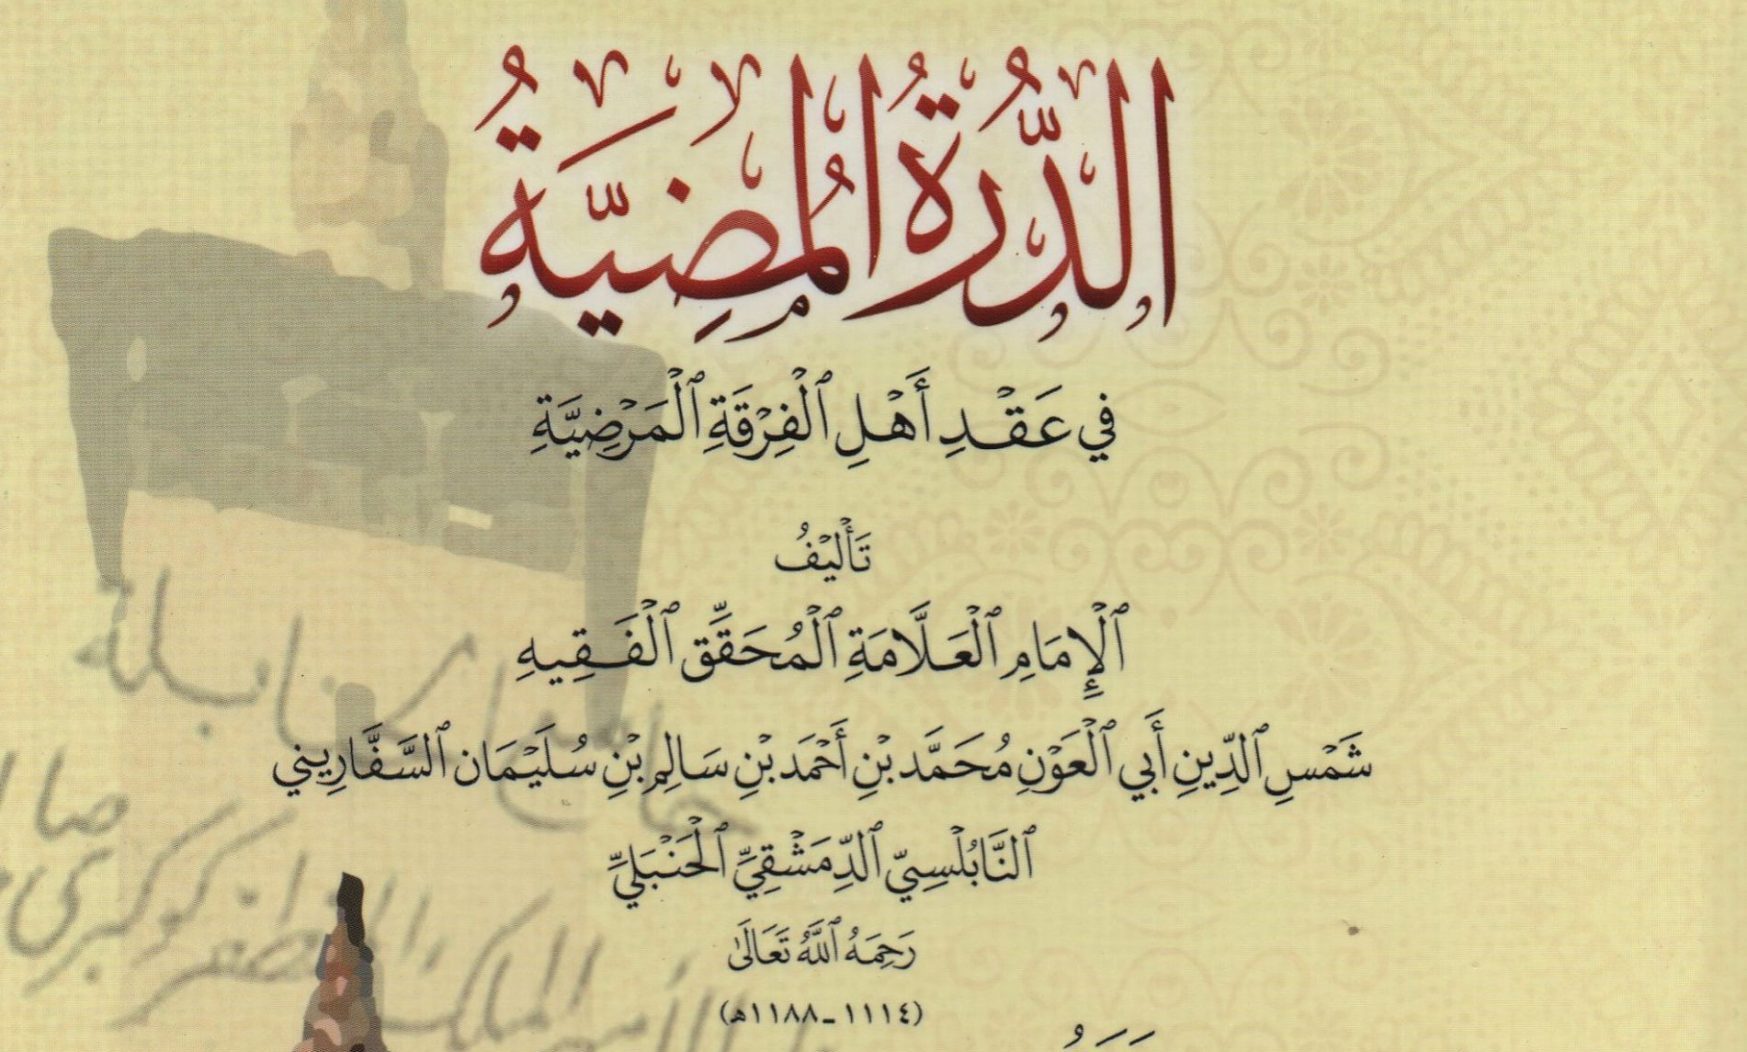 الدُّرَّةُ المُضِيَّةُ
فِي عَقْدِ أَهْلِ ٱلْفِرْقَةِ ٱلْمَرْضِيَّةِ
تَأْلِيْفُ
ٱلْإِمَامِ ٱلْعَلَّامَةِ ٱلْمُحَقِّقِ ٱلْفَقِيهِ
شَمْسِ ٱلدِّينِ أَبِي ٱلْعَوْنِ مُحَمَّد بْنِ أَحْمَد بْنِ سَالِم بْنِ سُلَيْمَان ٱلسَّفَّارِينِي
ٱلنَّابُلْسِيِّ ٱلدِّمَشْقِيِّ ٱلْحَنْبَلِيِّ
رَحِمَهُ ٱللَّهُ تَعَالَىٰ
(١١١٤ - ١١٨٨هـ)